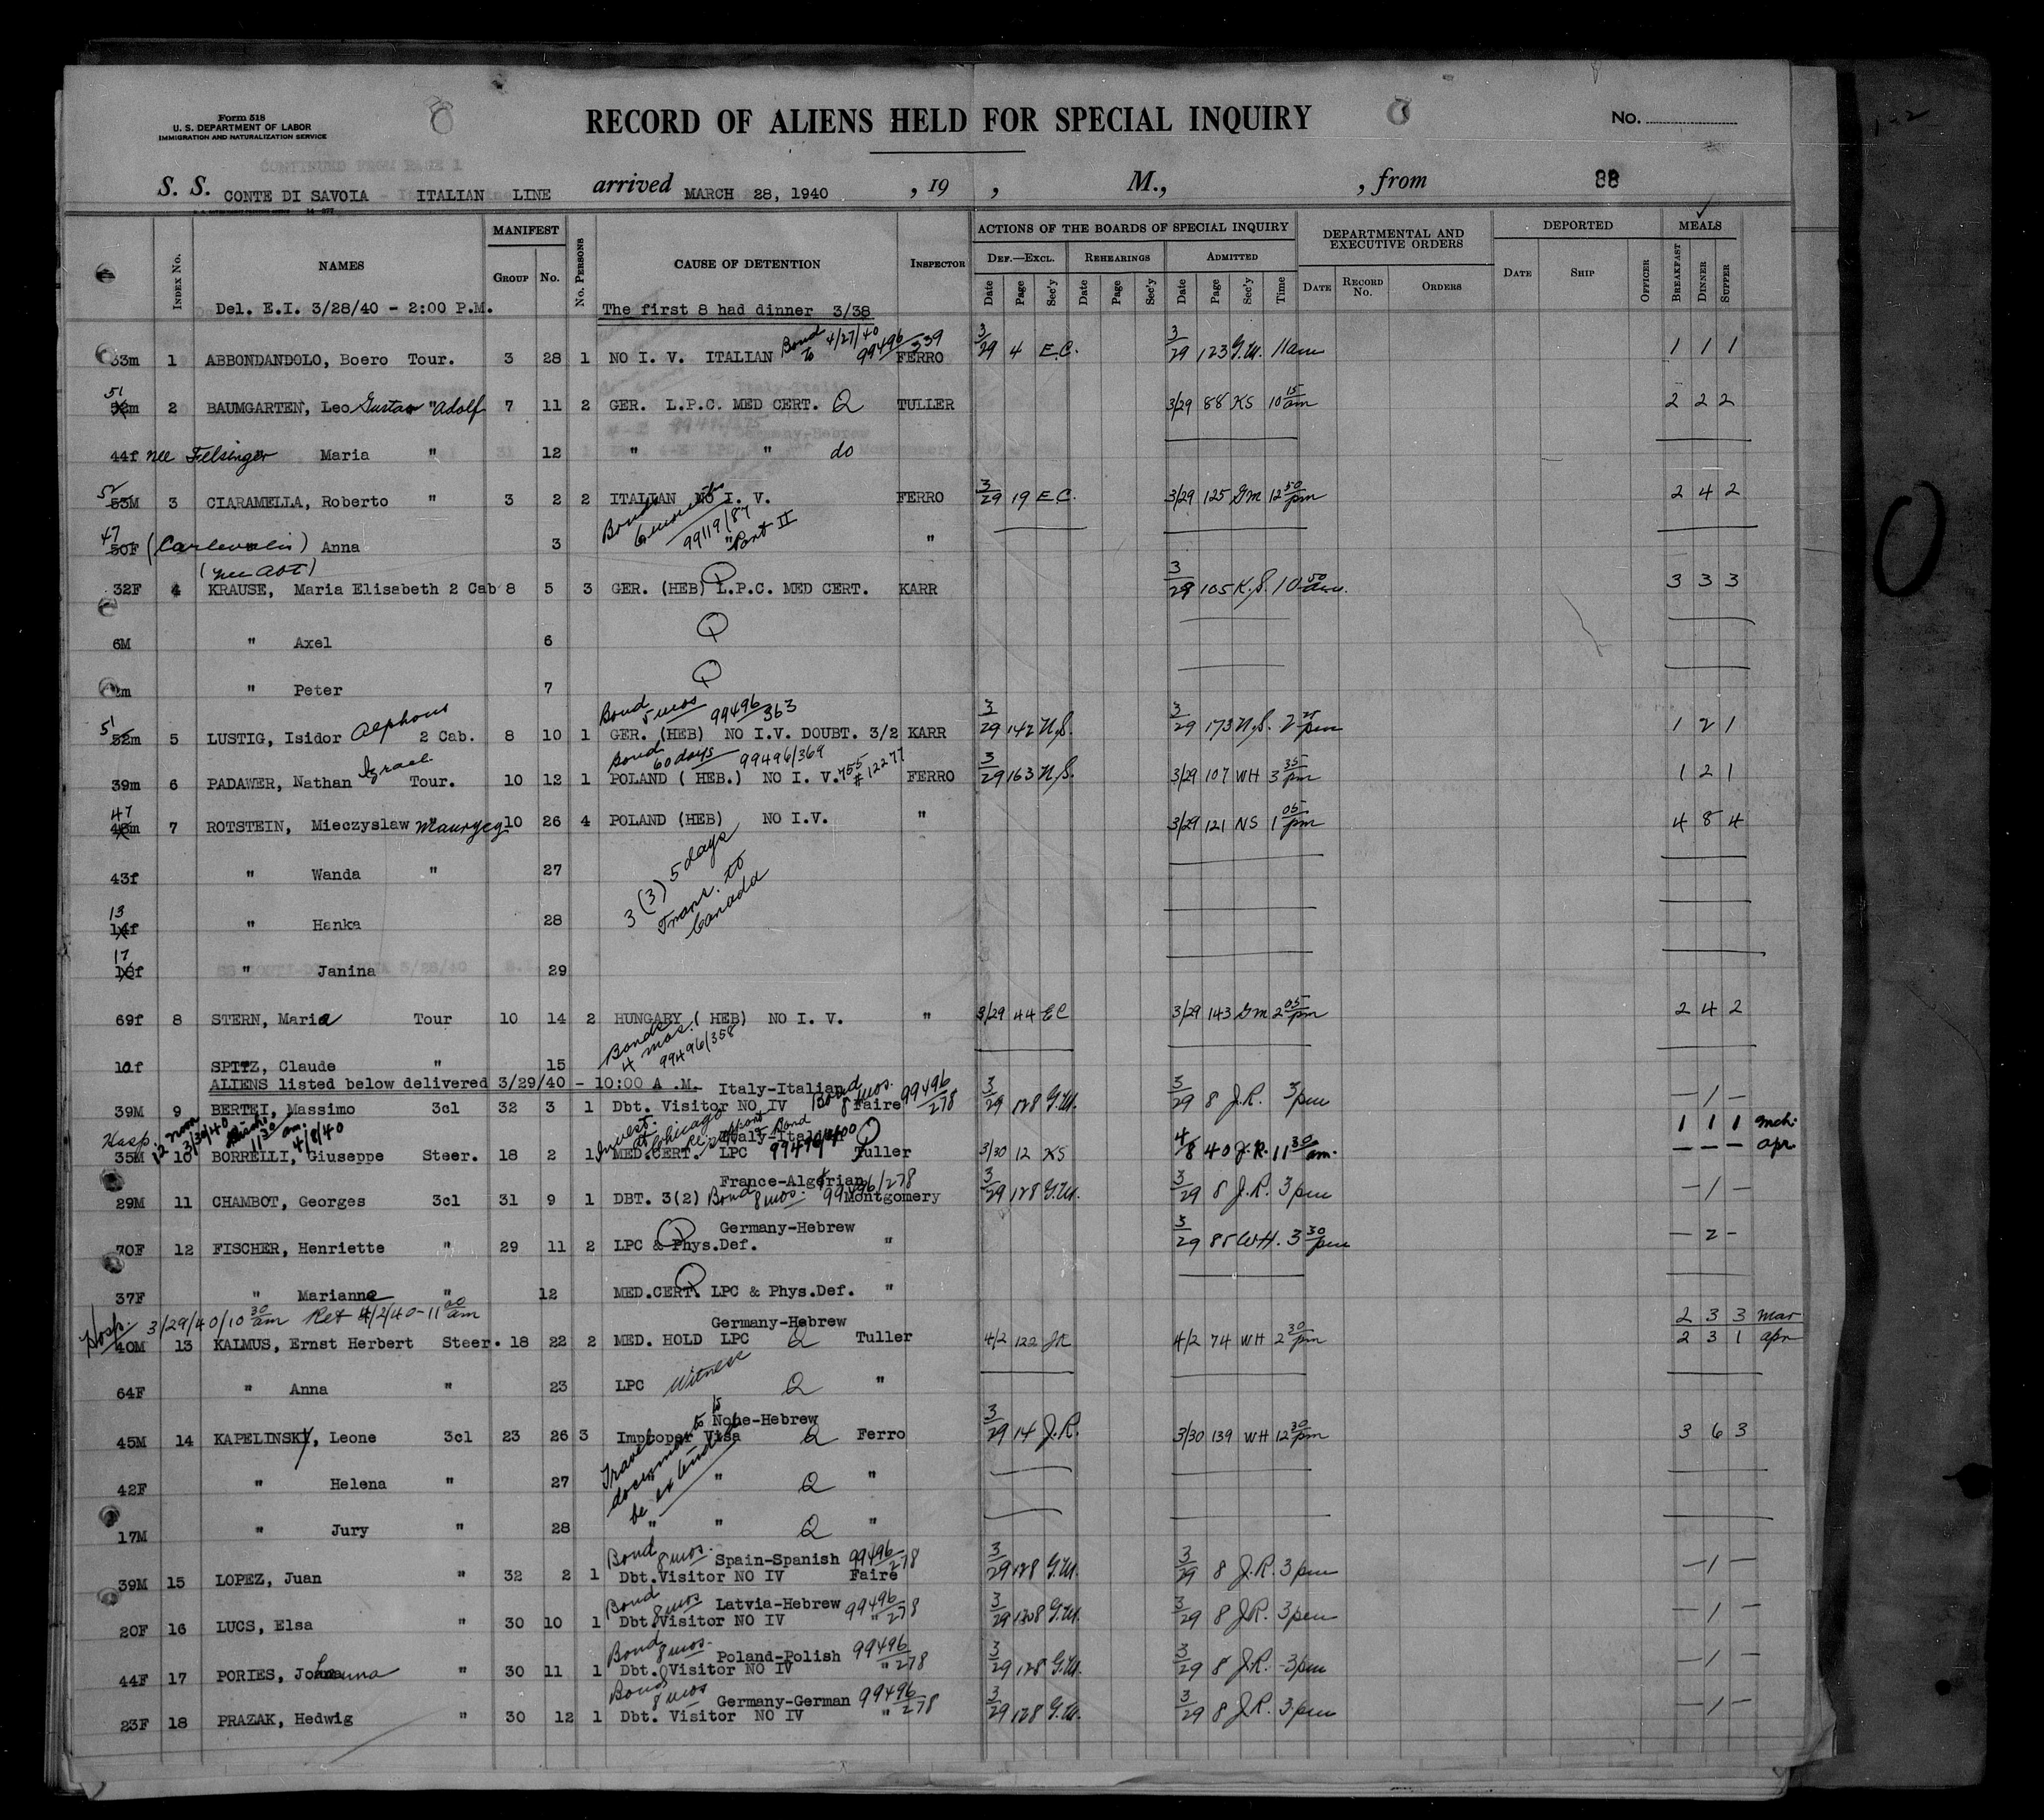 Form 518
U. S. DEPARTMENT OF LABOR
IMMIGRATION AND NATURALIZATION SERVICE
RECORD OF ALIENS HELD FOR SPECIAL INQUIRY
No.
CONTINUED FROM PAGE 1
S. S. CONTE DI SAVOIA - ITALIAN LINE arrived MARCH 28, 1940 , 19 , M., , from 88
INDEX No. NAMES MANIFEST GROUP No. No. PERSONS CAUSE OF DETENTION INSPECTOR ACTIONS OF THE BOARDS OF SPECIAL INQUIRY DEPARTMENTAL AND EXECUTIVE ORDERS DEPORTED MEALS
DEF.—EXCL. REHEARINGS ADMITTED
Date Page Sec'y Date Page Sec'y Date Page Sec'y Time DATE RECORD No. ORDERS DATE SHIP OFFICER BREAKFAST DINNER SUPPER
Del. E.I. 3/28/40 - 2:00 P.M. The first 8 had dinner 3/38
Bond to 4/27/40 99496/339
33m 1 ABBONDANDOLO, Boero Tour. 3 28 1 NO I. V. ITALIAN FERRO 3/29 4 E.C. 3/29 123 G.M. 11am 1 1 1
51
52m 2 BAUMGARTEN, Leo Gustav " Adolf 7 11 2 GER. L.P.C. MED CERT. Q TULLER 3/29 88 KS 10 15 am 2 2 2
44f nee Felsinger Maria " 12 " " do
52
53M 3 CIARAMELLA, Roberto " 3 2 2 ITALIAN NO I. V. FERRO 3/29 19 E.C. 3/29 125 GM 12 50 pm 2 4 2
Bond 6 months 99119/87 Part II
47
50F (Carlevalis) Anna 3 " "
(nee Abt)
32F 4 KRAUSE, Maria Elisabeth 2 Cab 8 5 3 GER. (HEB) L.P.C. MED CERT. Q KARR 3/29 105 K.S. 10 50 am. 3 3 3
6M " Axel 6 Q
2m " Peter 7 Q
Bond 5 mos 99496/363
51
52m 5 LUSTIG, Isidor Alphons 2 Cab. 8 10 1 GER. (HEB) NO I.V. DOUBT. 3/2 KARR 3/29 142 N.S. 3/29 173 N.S. 2 25 pm 1 2 1
Bond 60 days 99496/369
39m 6 PADAWER, Nathan Israel Tour. 10 12 1 POLAND ( HEB.) NO I. V. 755 # 12277 FERRO 3/29 163 N.S. 3/29 107 WH 3 35 pm 1 2 1
47
48m 7 ROTSTEIN, Mieczyslaw " Maurycy 10 26 4 POLAND (HEB) NO I.V. " 3/29 121 NS 1 05 pm 4 8 4
43f " Wanda " 27
3 (3) 5 days Trans. to Canada
13
14f " Hanka 28
17
18f " Janina 29
69f 8 STERN, Maria Tour 10 14 2 HUNGARY ( HEB) NO I. V. " 3/29 44 EC 3/29 143 GM 2 05 pm 2 4 2
Bonds 4 mos. 99496/358
10f SPITZ, Claude " 15
ALIENS listed below delivered 3/29/40 - 10:00 A .M. Italy-Italian Bond 8 mos. 99496/278
39M 9 BERTEI, Massimo 3cl 32 3 1 Dbt. Visitor NO IV Faire 3/29 128 G.M. 3/29 8 J.R. 3pm — 1 —
Hosp. 12 noon 3/30/40 Disch. 11 30 am. 4/8/40 Invest. at Chicago re support & Bond Italy-Italian 1 1 1 Mch.
35M 10 BORRELLI, Giuseppe Steer. 18 2 1 MED.CERT. LPC Q Tuller 3/30 12 KS 4/8 40 J.R. 11 30 am. — — — apr
France-Algerian
29M 11 CHAMBOT, Georges 3cl 31 9 1 DBT. 3(2) Bond 8 mos. 99496/278 Montgomery 3/29 128 G.M. 3/29 8 J.R. 3 pm — 1 —
Germany-Hebrew
70F 12 FISCHER, Henriette " 29 11 2 LPC & Phys.Def. Q " 3/29 85 WH. 3 30 pm — 2 —
37F " Marianne " 12 MED.CERT. LPC & Phys.Def. Q "
Hosp. 3/29/40/10 30 am Ret 4/2/40 - 11 00 am Germany-Hebrew 2 3 3 Mar
40M 13 KALMUS, Ernst Herbert Steer. 18 22 2 MED. HOLD LPC Q Tuller 4/2 122 JR 4/2 74 WH 2 30 pm 2 3 1 apr
64F " Anna " 23 LPC Witness Q "
None-Hebrew
45M 14 KAPELINSKY, Leone 3cl 23 26 3 Improper Visa Q Ferro 3/29 14 J.R. 3/30 139 WH 12 30 pm 3 6 3
Travel document to be extended
42F " Helena " 27 " " Q "
17M " Jury " 28 " " Q "
Bond 8 mos. Spain-Spanish 99496/278
39M 15 LOPEZ, Juan " 32 2 1 Dbt.Visitor NO IV Faire 3/29 128 G.M. 3/29 8 J.R. 3 pm — 1 —
Bond 8 mos Latvia-Hebrew 99496/278
20F 16 LUCS, Elsa " 30 10 1 Dbt.Visitor NO IV " 3/29 128 G.M. 3/29 8 J.R. 3 pm — 1 —
Bond 8 mos. Poland-Polish 99496/278
44F 17 PORIES, Johanna " 30 11 1 Dbt. Visitor NO IV " 3/29 128 G.M. 3/29 8 J.R. 3 pm — 1 —
Bond 8 mos Germany-German 99496/278
23F 18 PRAZAK, Hedwig " 30 12 1 Dbt. Visitor NO IV " 3/29 128 G.M. 3/29 8 J.R. 3 pm — 1 —